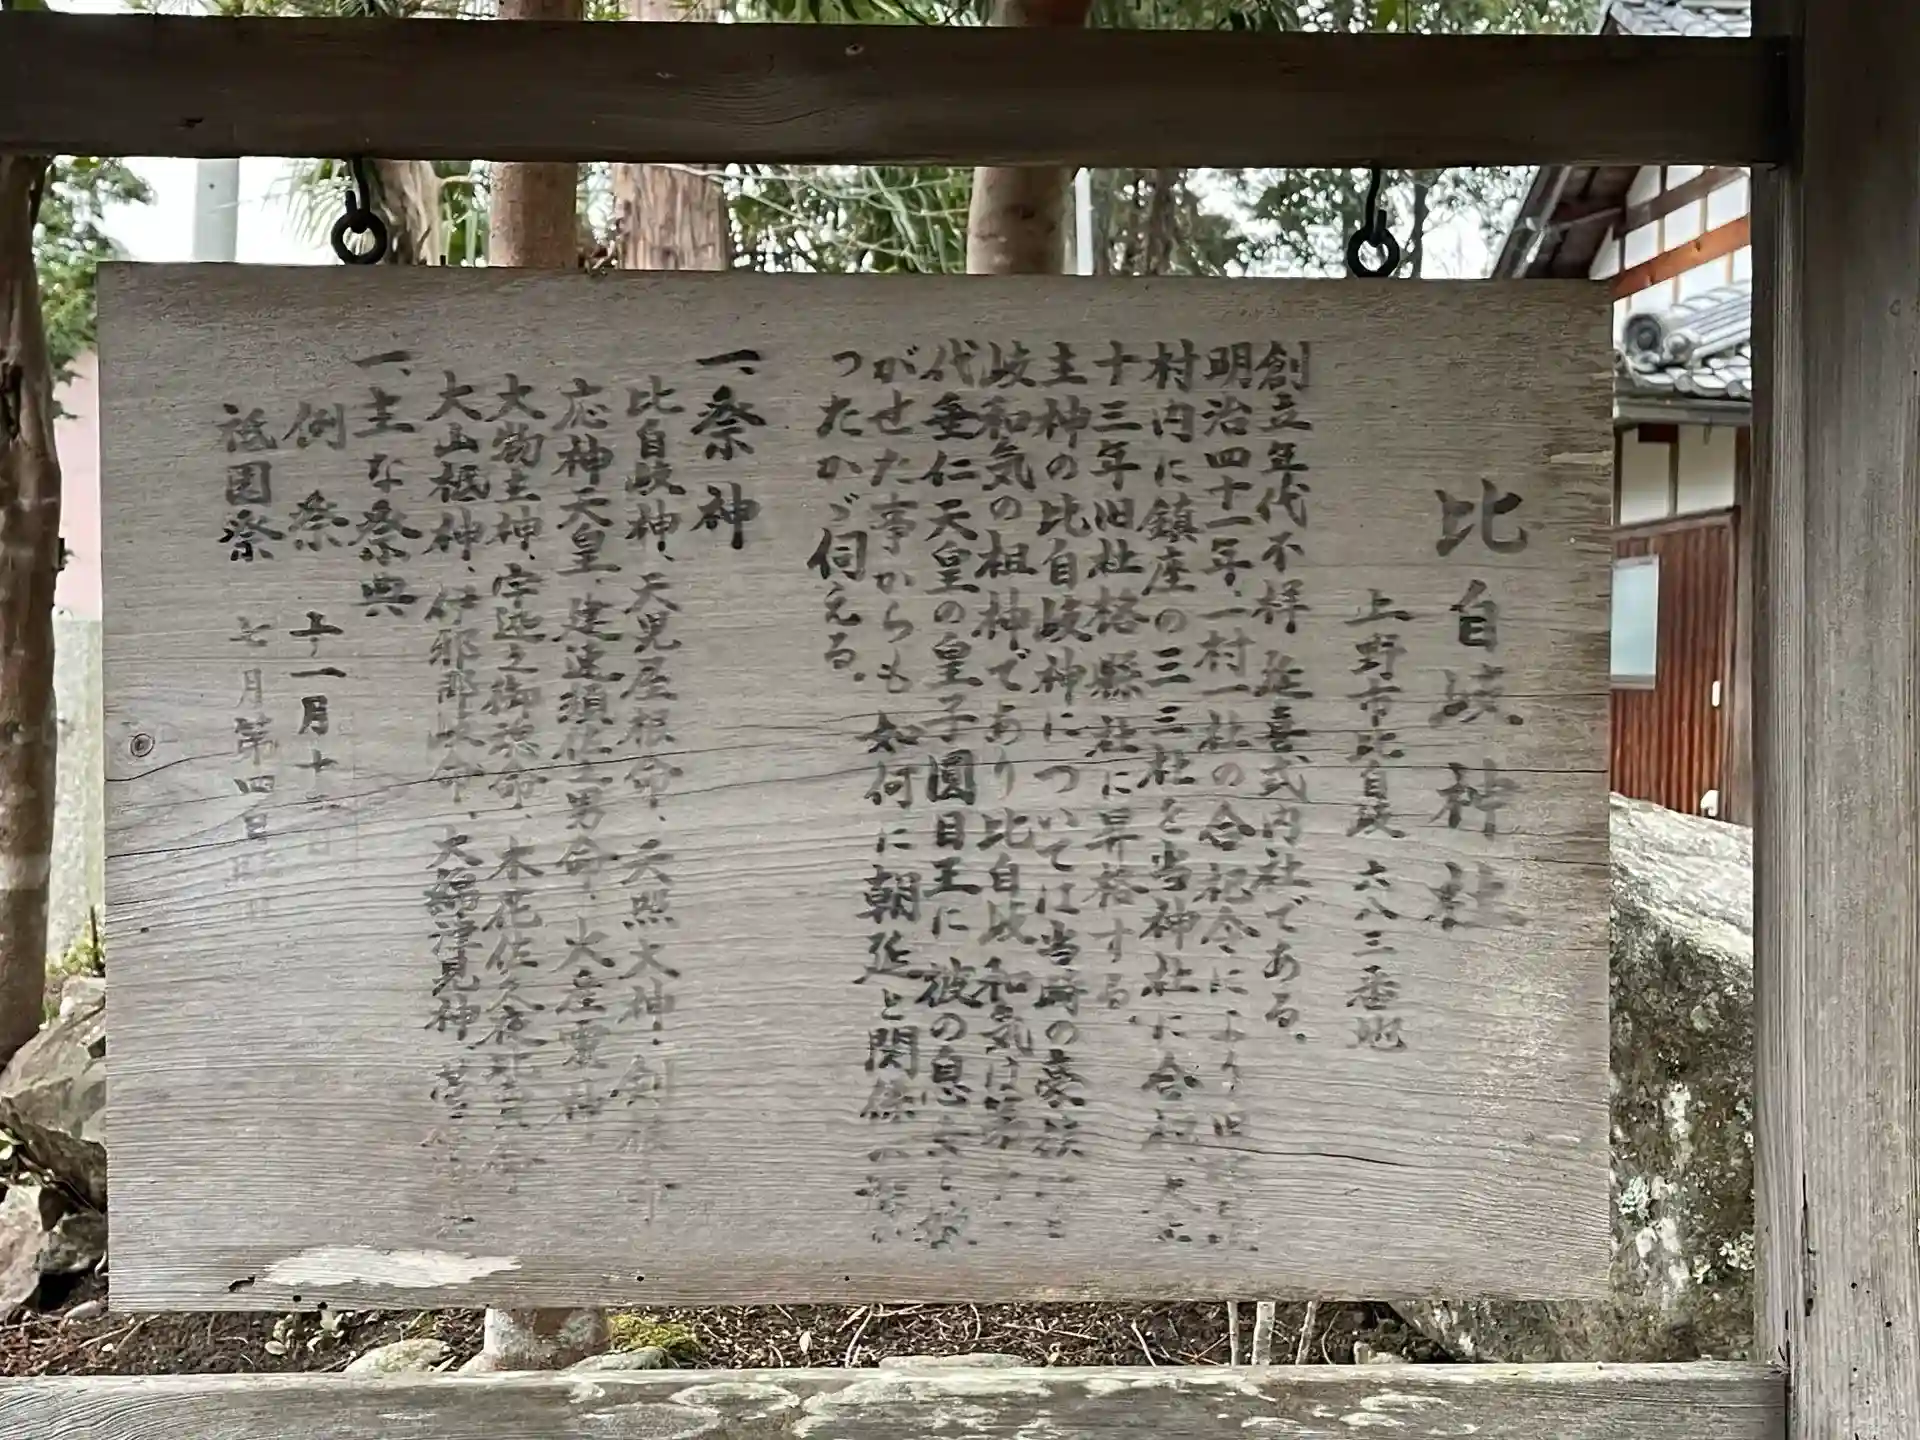 比自岐神社
上野市比自岐六八三番地
創立年代不祥 延喜式内社である。
明治四十一年、一村一社の合祀令により旧
村内に鎮座の三三社を当神社に合祀、大正
十三年旧社格縣社に昇格する。
主神の比自岐神については当時の豪族
岐和気の祖神であり比自岐和気は第十一
代垂仁天皇の皇子圓目王に 彼の息女を嫁
がせた事からも如何に朝廷と関係の深か
ったかゞ伺える。
一、祭神
比自岐神、天児屋根命、天照大神、剣根命
応神天皇、建速須佐之男命、火産霊神
大物主神、宇迦之御魂命、木花佐久夜比賣命
大山祇神、伊邪那岐命、大綿津見神、菅
一、主な祭典
例祭 十一月十二日
祗園祭 七月第四日曜日